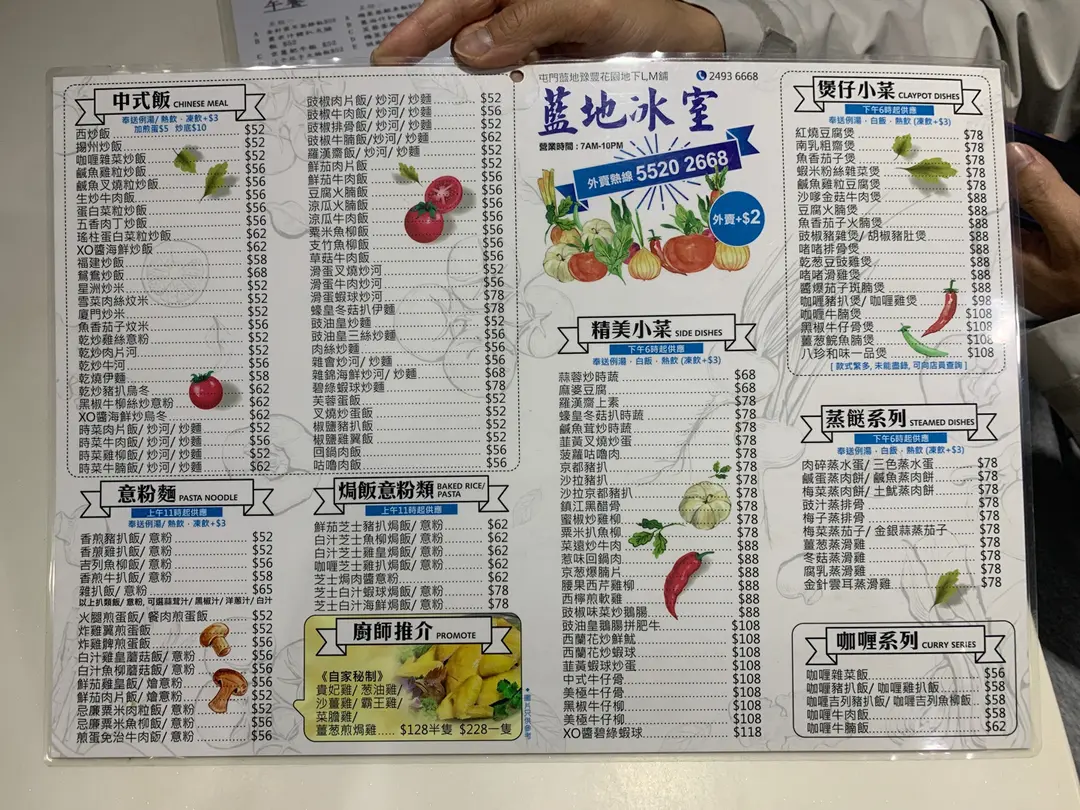 中式飯 CHINESE MEAL
奉送例湯/ 熱飲 · 凍飲+$3
加煎蛋$5 炒底$10
西炒飯 $52
揚州炒飯 $52
咖喱雜菜炒飯 $52
鹹魚雞粒炒飯 $56
鹹魚叉燒粒炒飯 $56
生炒牛肉飯 $56
蛋白菜粒炒飯 $56
五香肉丁炒飯 $56
瑤柱蛋白菜粒炒飯 $62
XO醬海鮮炒飯 $62
福建炒飯 $58
鴛鴦炒飯 $68
星洲炒米 $52
雪菜肉絲炆米 $52
廈門炒米 $52
魚香茄子炆米 $56
乾炒雞絲意粉 $52
乾炒肉片河 $52
乾炒牛河 $56
乾燒伊麵 $58
乾炒豬扒烏冬 $62
黑椒牛柳絲炒意粉 $62
XO醬海鮮炒烏冬 $62
時菜肉片飯/ 炒河/ 炒麵 $52
時菜牛肉飯/ 炒河/ 炒麵 $56
時菜雞柳飯/ 炒河/ 炒麵 $56
時菜牛腩飯/ 炒河/ 炒麵 $62
豉椒肉片飯/ 炒河/ 炒麵 $52
豉椒牛肉飯/ 炒河/ 炒麵 $56
豉椒排骨飯/ 炒河/ 炒麵 $52
豉椒牛腩飯/ 炒河/ 炒麵 $62
羅漢齋飯/ 炒河/ 炒麵 $52
鮮茄肉片飯 $52
鮮茄牛肉飯 $56
豆腐火腩飯 $56
涼瓜火腩飯 $56
涼瓜牛肉飯 $56
粟米魚柳飯 $56
支竹魚柳飯 $56
草菇牛肉飯 $56
滑蛋叉燒炒河 $52
滑蛋牛肉炒河 $56
滑蛋蝦球炒河 $78
蠔皇冬菇扒伊麵 $78
豉油皇炒麵 $52
豉油皇三絲炒麵 $56
肉絲炒麵 $56
雜會炒河/ 炒麵 $56
雜錦海鮮炒河/ 炒麵 $68
碧綠蝦球炒麵 $78
芙蓉蛋飯 $52
叉燒炒蛋飯 $52
椒鹽豬扒飯 $52
椒鹽雞翼飯 $52
回鍋肉飯 $56
咕嚕肉飯 $56
意粉麵 PASTA NOODLE
上午11時起供應
奉送例湯/ 熱飲 · 凍飲+$3
香煎豬扒飯/ 意粉 $52
香煎雞扒飯/ 意粉 $52
吉列魚柳飯/ 意粉 $56
香煎牛扒飯/ 意粉 $58
雜扒飯/ 意粉 $65
以上扒類飯/ 意粉, 可選蘑茸汁/ 黑椒汁/ 洋蔥汁/ 白汁
火腿煎蛋飯/ 餐肉煎蛋飯 $52
炸雞翼煎蛋飯 $52
炸雞脾煎蛋飯 $56
白汁雞皇蘑菇飯/ 意粉 $56
白汁魚柳蘑菇飯/ 意粉 $56
鮮茄雞皇飯/ 燴意粉 $56
鮮茄肉片飯/ 燴意粉 $52
忌廉粟米肉粒飯/ 意粉 $52
忌廉粟米魚柳飯/ 意粉 $56
煎蛋免治牛肉飯/ 意粉 $56
焗飯意粉類 BAKED RICE/ PASTA
上午11時起供應
鮮茄芝士豬扒焗飯/ 意粉 $62
白汁芝士魚柳焗飯/ 意粉 $62
白汁芝士雞皇焗飯/ 意粉 $62
咖喱芝士豬扒焗飯/ 意粉 $62
芝士焗肉醬意粉 $62
芝士白汁蝦球焗飯/ 意粉 $78
芝士白汁海鮮焗飯/ 意粉 $78
廚師推介 PROMOTE
《自家秘制》
貴妃雞/ 葱油雞/
沙薑雞/ 霸王雞/
菜膽雞/
薑葱煎焗雞 $128半隻 $228一隻
屯門藍地豫豐花園地下L,M舖 2493 6668
藍地冰室
營業時間 : 7AM-10PM
外賣熱線 5520 2668
外賣+$2
精美小菜 SIDE DISHES
下午6時起供應
奉送例湯 · 白飯 · 熱飲 (凍飲+$3)
蒜蓉炒時蔬 $68
麻婆豆腐 $68
羅漢齋上素 $78
蠔皇冬菇扒時蔬 $78
鹹魚茸炒時蔬 $78
韮黃叉燒炒蛋 $78
菠蘿咕嚕肉 $78
京都豬扒 $78
沙拉豬扒 $78
沙拉京都豬扒 $78
鎮江黑醋骨 $78
蜜椒炒雞柳 $78
粟米扒魚柳 $78
菜遠炒牛肉 $88
惹味回鍋肉 $88
京葱爆腩片 $88
腰果西芹雞柳 $88
西檸煎軟雞 $88
豉椒味菜炒鵝腸 $88
豉油皇鵝腸拼肥牛 $108
西蘭花炒鮮魷 $108
西蘭花炒蝦球 $108
韮黃蝦球炒蛋 $108
中式牛仔骨 $108
美極牛仔骨 $108
黑椒牛仔柳 $108
美極牛仔柳 $108
XO醬碧綠蝦球 $118
煲仔小菜 CLAYPOT DISHES
下午6時起供應
奉送例湯 · 白飯 · 熱飲 (凍飲+$3)
紅燒豆腐煲 $78
南乳粗齋煲 $78
魚香茄子煲 $78
蝦米粉絲雜菜煲 $78
鹹魚雞粒豆腐煲 $78
沙嗲金菇牛肉煲 $88
豆腐火腩煲 $88
魚香茄子火腩煲 $88
豉椒豬雜煲/ 胡椒豬肚煲 $88
啫啫排骨煲 $88
乾葱豆豉雞煲 $88
啫啫滑雞煲 $88
醬爆茄子斑腩煲 $88
咖喱豬扒煲/ 咖喱雞煲 $98
咖喱牛腩煲 $108
黑椒牛仔骨煲 $108
薑葱鯇魚腩煲 $108
八珍和味一品煲 $108
[ 款式繁多, 未能盡錄, 可向店員查詢 ]
蒸餸系列 STEAMED DISHES
下午6時起供應
奉送例湯 · 白飯 · 熱飲 (凍飲+$3)
肉碎蒸水蛋/ 三色蒸水蛋 $78
鹹蛋蒸肉餅/ 鹹魚蒸肉餅 $78
梅菜蒸肉餅/ 土魷蒸肉餅 $78
豉汁蒸排骨 $78
梅子蒸排骨 $78
梅菜蒸茄子/ 金銀蒜蒸茄子 $78
薑葱蒸滑雞 $78
冬菇蒸滑雞 $78
腐乳蒸滑雞 $78
金針雲耳蒸滑雞 $78
咖喱系列 CURRY SERIES
咖喱雜菜飯 $56
咖喱豬扒飯/ 咖喱雞扒飯 $58
咖喱吉列豬扒飯/ 咖喱吉列魚柳飯 $58
咖喱牛肉飯 $58
咖喱牛腩飯 $62